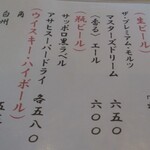 （生ビール）
ザ・プレミアム・モルツ
五〇〇
マスターズドリーム
六〇〇
〈香る〉エール
六〇〇
（瓶ビール）
サッポロ黒ラベル
アサヒスーパードライ
各五八〇
（ウイスキー・ハイボール）
角
白州